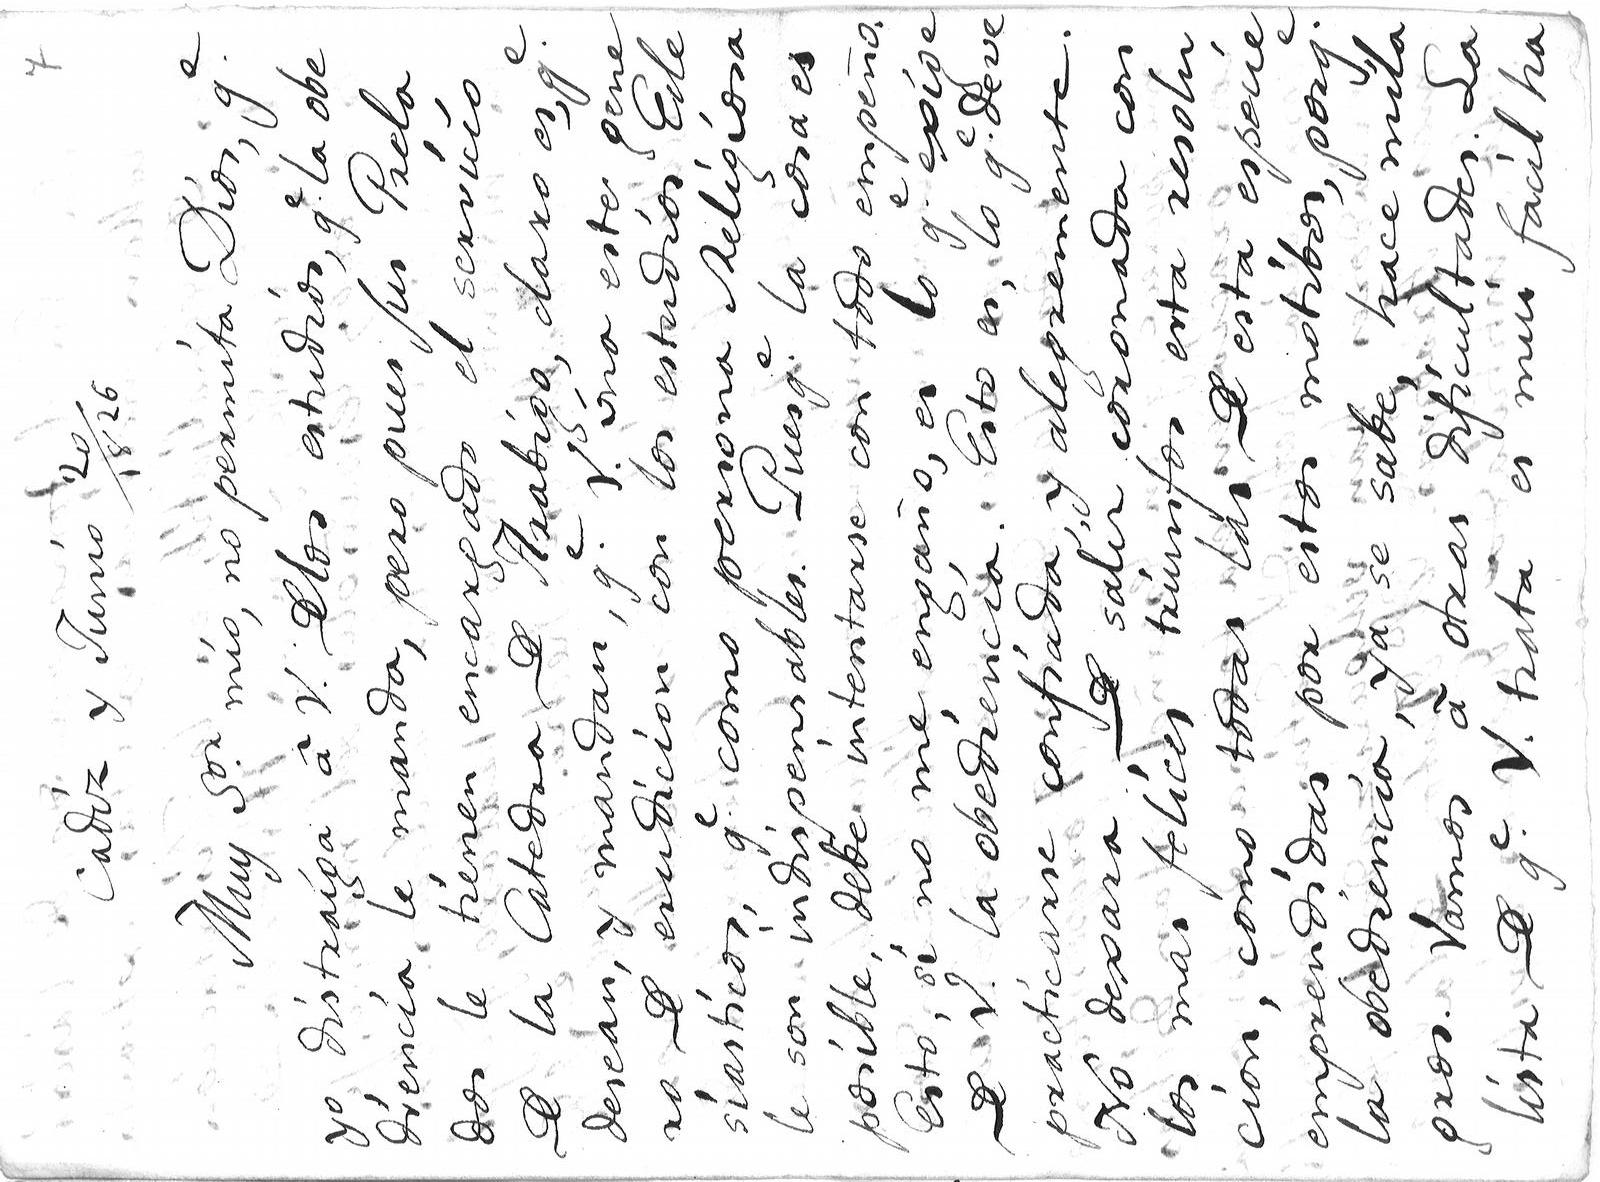 7
Cadiz y Junio 20/1826
Muy Sor. mio, no permita Dios, q.e
yo distraiga à V. De los estudios, q.e la obe
diencia le manda, pero pues sus Prela
dos le tienen encargado el servicio
De la Catedra De Arabigo, claro es, q.e
desean, y mandan, q.e V. una este gene
ro De erudicion con los estudios Ecle
siasticos, q.e como persona Religiosa
le son indispensables. Pues q.e la cosa es
posible, debe intentarse con todo empeño.
Esto, si no me engaño, es lo q.e exige
De V. la obediencia. Esto es, lo q.e deve
practicarse confiada, y alegremente.
No dexara De salir coronada con
los mas felices triunfos esta resolu
cion, como todas las De esta especie
emprendidas por estos motibos, porq.e
la obediencia, ya se sabe, hace mila
gros. Vamos à otras dificultades. La
lista De q.e V. trata es mui facil ha